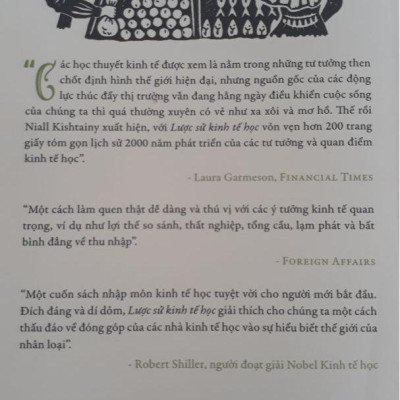 “Các học thuyết kinh tế được xem là nằm trong những tư tưởng then
chốt định hình thế giới hiện đại, nhưng nguồn gốc của các động
lực thúc đẩy thị trường vẫn đang hằng ngày điều khiển cuộc sống
của chúng ta thì quá thường xuyên có vẻ như xa xôi và mơ hồ. Thế rồi
Niall Kishtainy xuất hiện, với Lược sử kinh tế học vỏn vẹn hơn 200 trang
giấy tóm gọn lịch sử 2000 năm phát triển của các tư tưởng và quan điểm
kinh tế học”.
- Laura Garmeson, FINANCIAL TIMES
“Một cách làm quen thật dễ dàng và thú vị với các ý tưởng kinh tế quan
trọng, ví dụ như lợi thế so sánh, thất nghiệp, tổng cầu, lạm phát và bất
bình đẳng về thu nhập”.
- FOREIGN AFFAIRS
“Một cuốn sách nhập môn kinh tế học tuyệt vời cho người mới bắt đầu.
Đích đáng và dí dỏm, Lược sử kinh tế học giải thích cho chúng ta một cách
thấu đáo về đóng góp của các nhà kinh tế học vào sự hiểu biết thế giới của
nhân loại”.
- Robert Shiller, người đoạt giải Nobel Kinh tế học